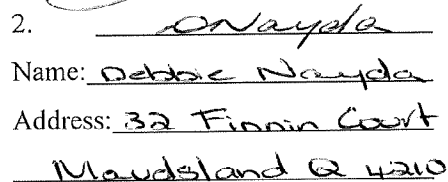 2. DNayda
Name: Debbie Nayda
Address: 32 Finnin Court
Maudsland Q 4210